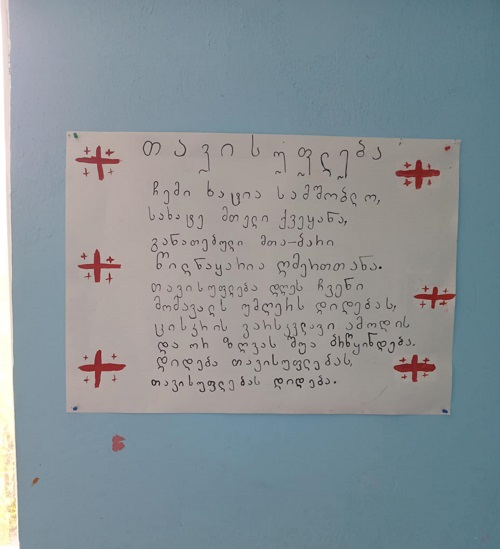 თავისუფლება
ჩემი ხატია სამშობლო,
სახატე მთელი ქვეყანა,
განათებული მთა-ბარი
წილნაყარია ღმერთთანა.
თავისუფლება დღეს ჩვენი
მომავალს უმღერს დიდებას,
ცისკრის ვარსკვლავი ამოდის
და ორ ზღვას შუა ბრწყინდება.
დიდება თავისუფლებას,
თავისუფლებას დიდება.